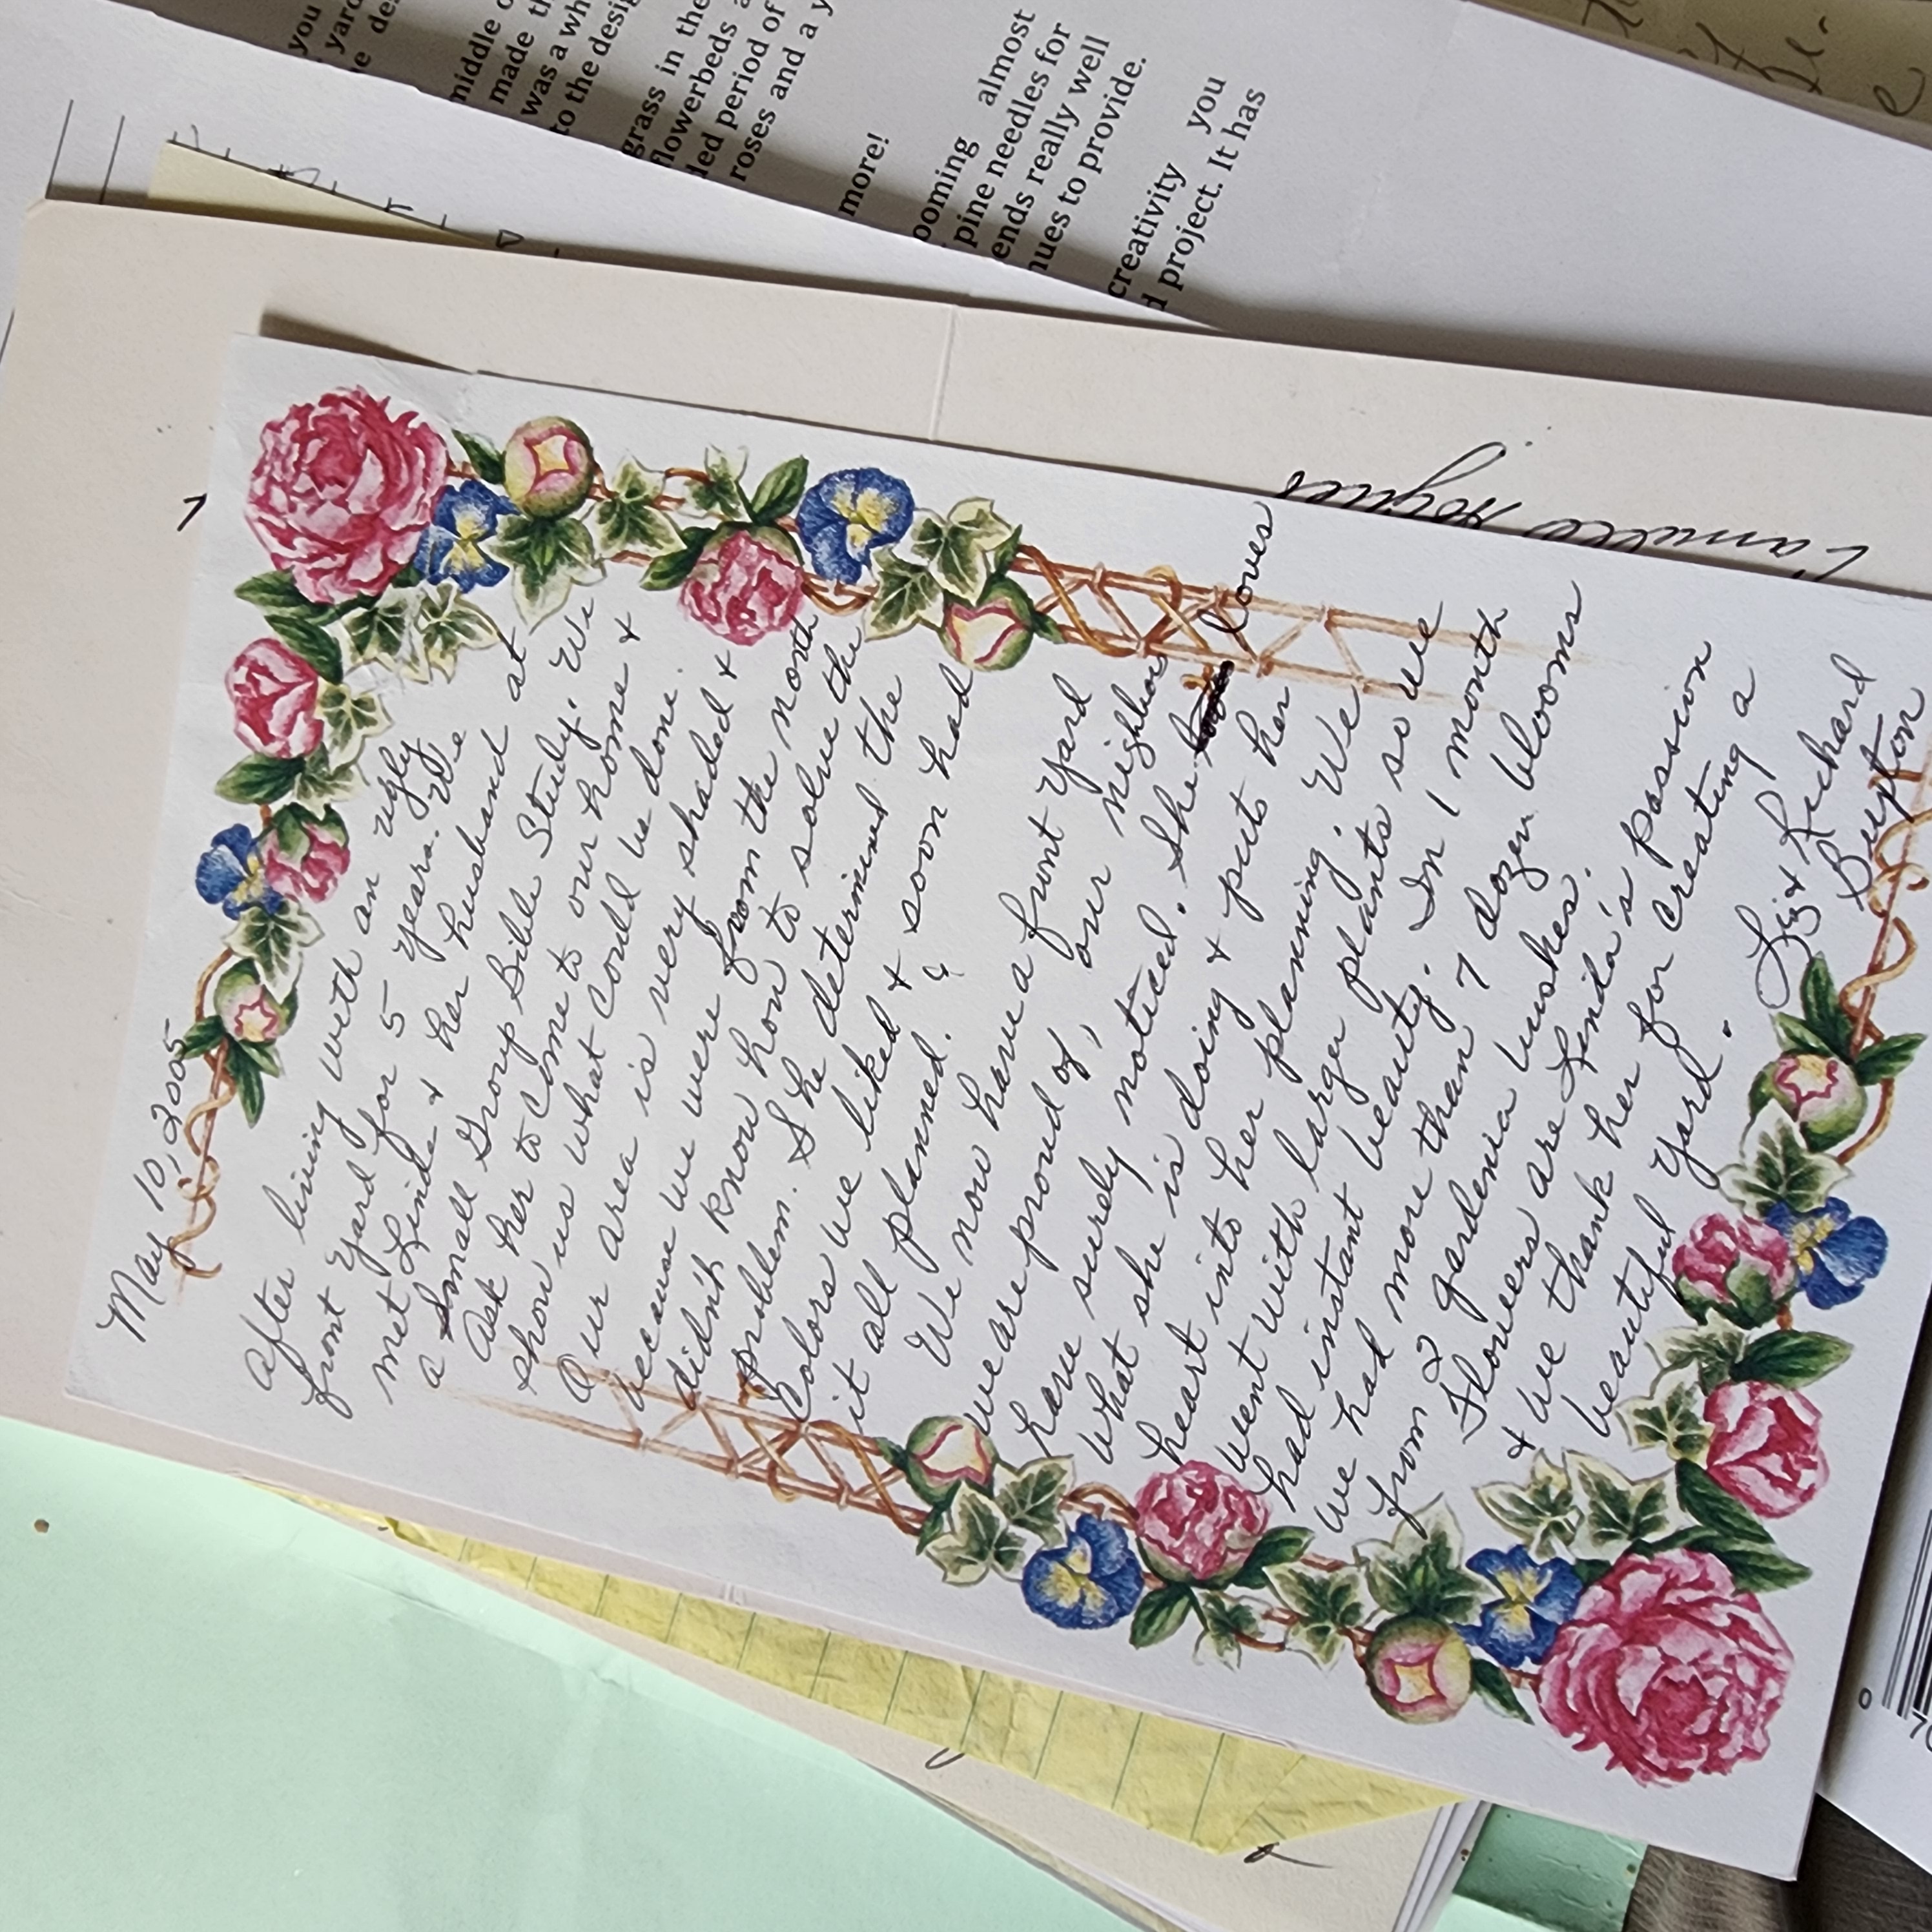 May 10, 2005
After living with an ugly
front yard for 5 years. We
met Linda & her husband at
a Small Group Bible Study. We
Ask her to come to our home &
show us what could be done.
Our area is very shaded &
because we were from the north
didn't know how to solve the
problem. She determined the
Colors we liked & soon had
it all planned.
We now have a front yard
we are proud of, our nighbors
have surely noticed. She loves
what she is doing & puts her
heart into her planning. We
went with larger plants so we
had instant beauty. In 1 month
we had more than 7 dozen blooms
from 2 gardenia bushes.
Flowers are Linda's passion
& we thank her for creating a
beautiful yard.
Liz & Richard
Buxton
you
yard
middle
made
was a
to the
grass in the
flowerbeds
period of
roses and a
more!
almost
pine needles for
ends really well
to provide.
creativity you
project. It has